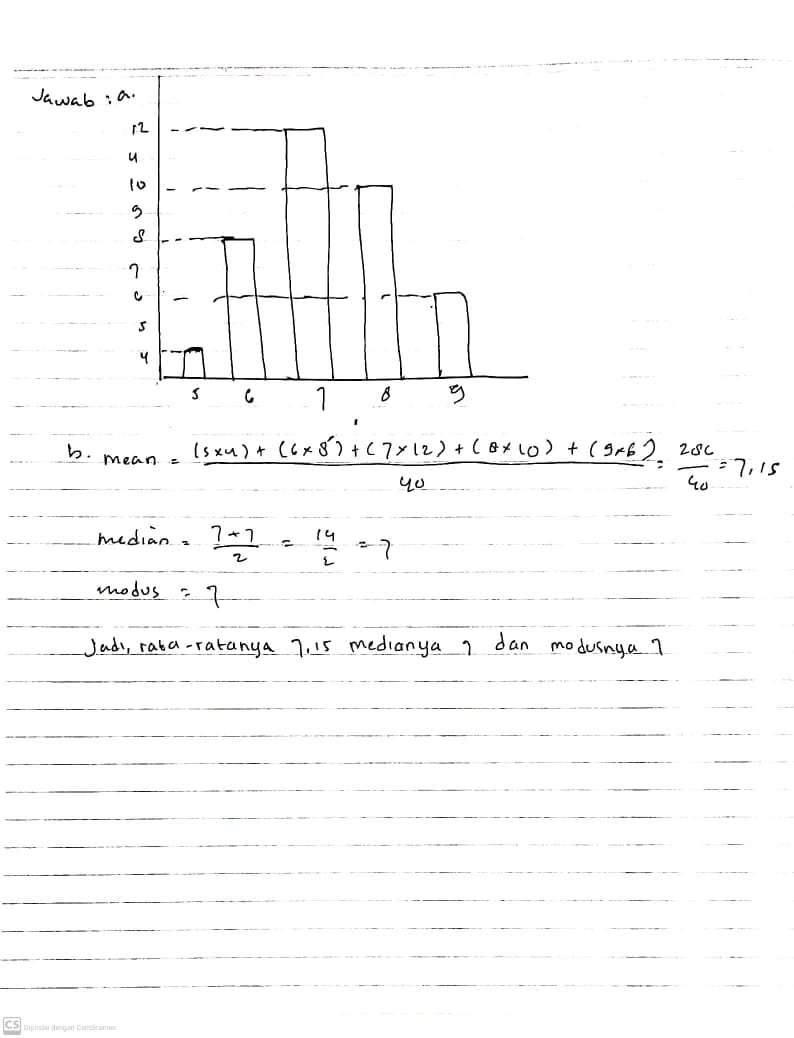 Jawab : a.
12
11
10
9
8
7
6
5
4
5 6 7 8 9
b. mean = (5x4) + (6x8) + (7x12) + (8x10) + (9x6) = 286 = 7,15
40 40
median = 7+7 = 14 = 7
2 2
modus = 7
Jadi, rata-ratanya 7,15 medianya 7 dan modusnya 7
CS Dipindai dengan CamScanner